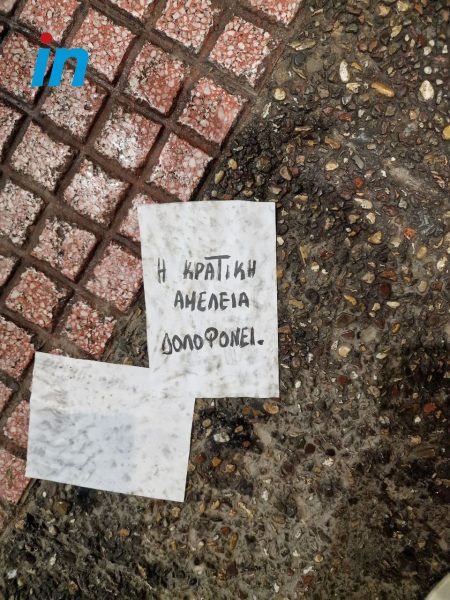 in
Η ΚΡΑΤΙΚΗ
ΑΜΕΛΕΙΑ
ΔΟΛΟΦΟΝΕΙ.